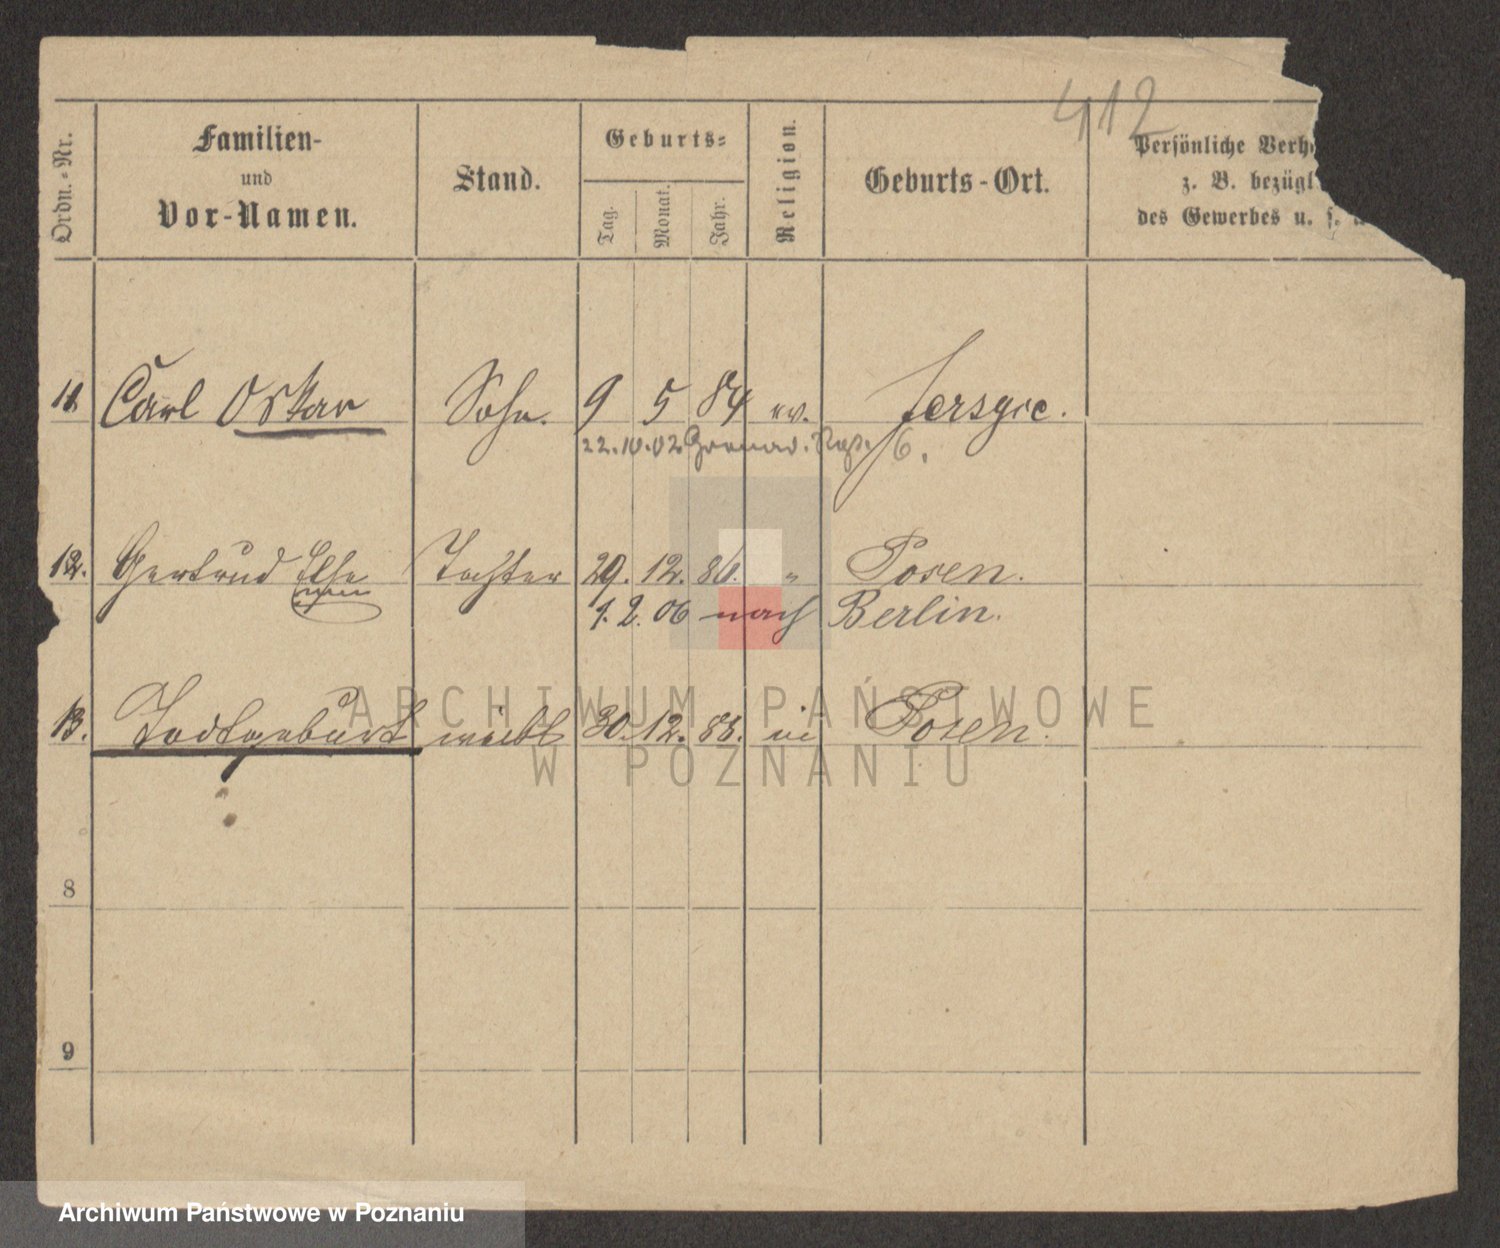 412
Ordn.-Nr.
Familien-
und
Vor-Namen.
Stand.
Geburts-
Tag.
Monat.
Jahr.
Religion.
Geburts-Ort.
Persönliche Verh
z. B. bezügl
des Gewerbes u. s.
11. Carl Oskar Sohn. 9 5 84 ev. Jersyce.
22.10.02 Grenad. Rgt. 6.
12. Gertrud Else Tochter 29. 12. 86. " Posen.
1. 2. 06 nach Berlin.
13. Todtgeburt weibl 30. 12. 88. Posen.
8
9
ARCHIWUM PAŃSTWOWE
W POZNANIU
Archiwum Państwowe w Poznaniu